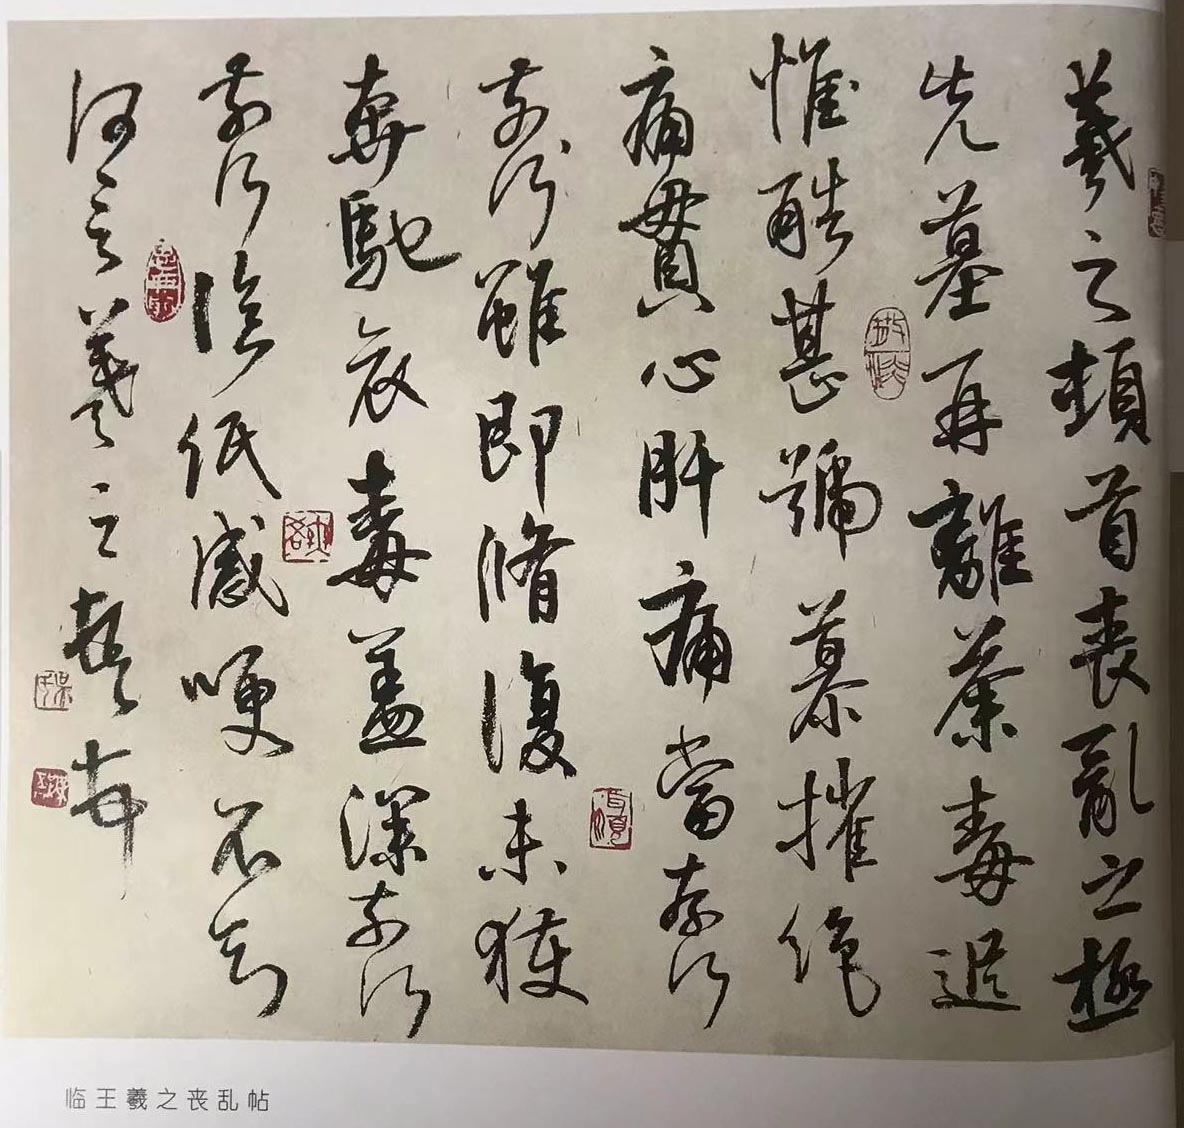 羲之頓首喪亂之極
先墓再離荼毒追
惟酷甚號慕摧絶
痛貫心肝痛當奈何
奈何雖即脩復未獲
奔馳哀毒益深奈何
奈何臨紙感哽不知
何言羲之頓首
临王羲之丧乱帖